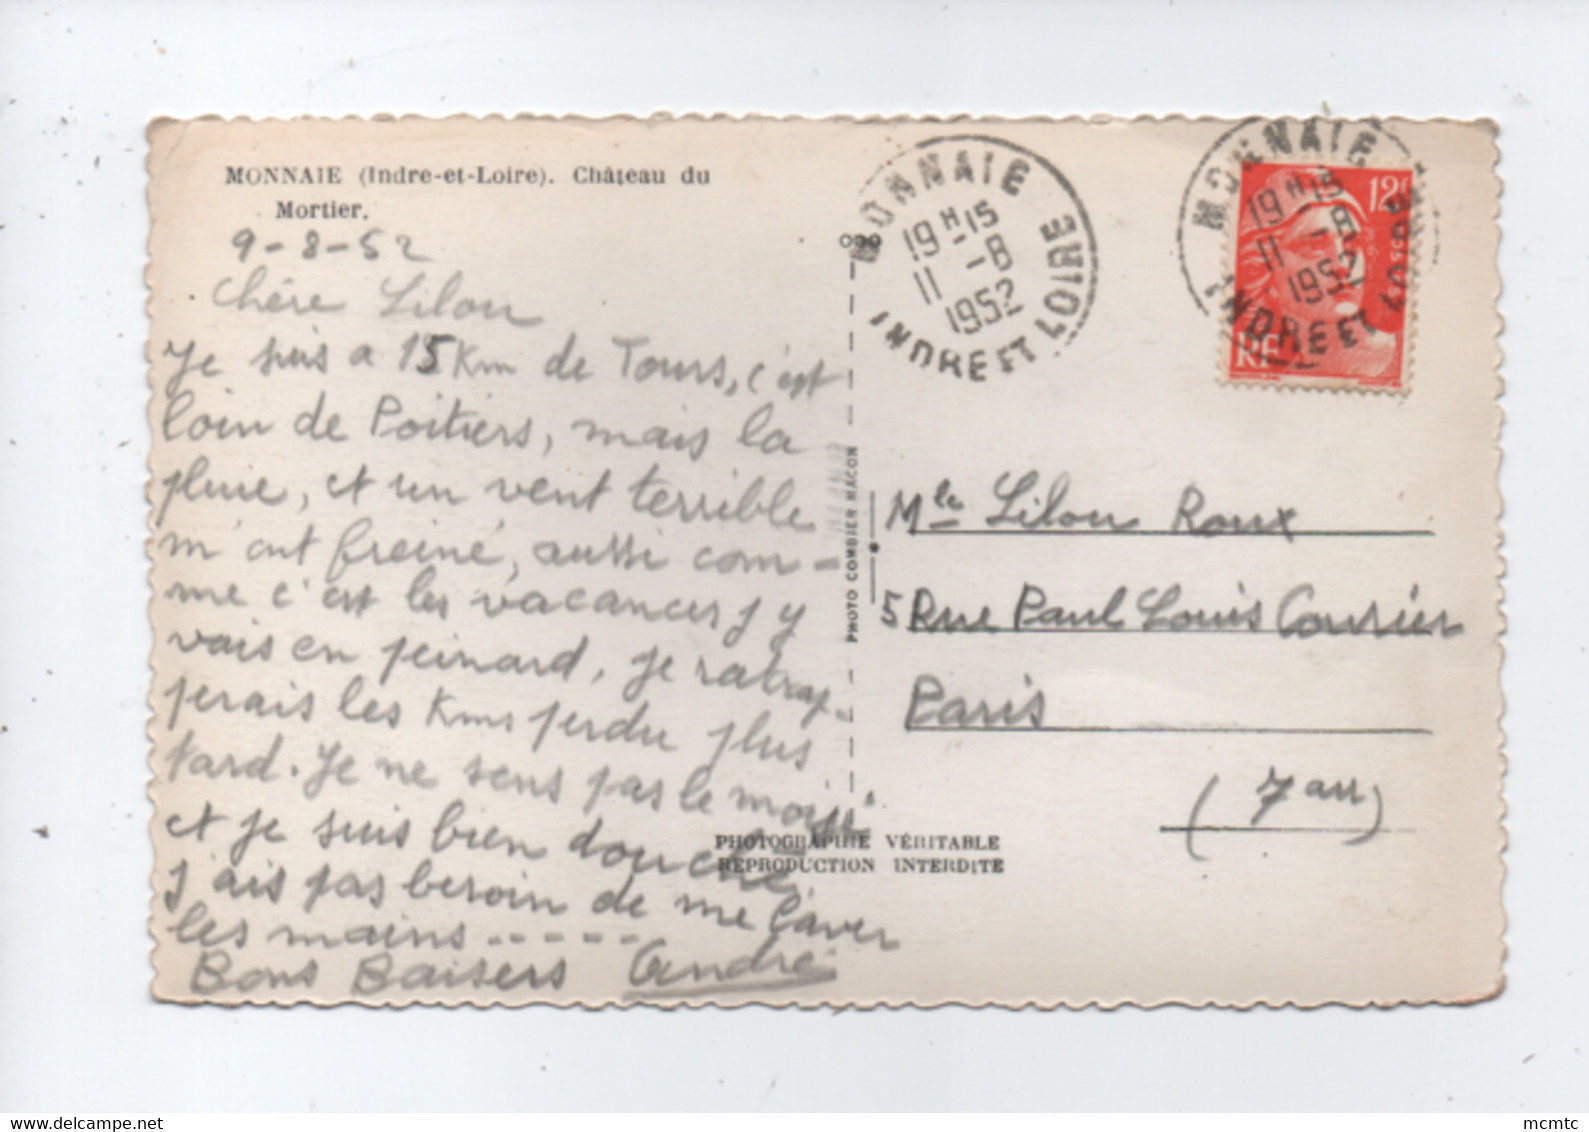 MONNAIE (Indre-et-Loire). Château du
Mortier.
9-8-52
Chère Lilou
Je suis a 15 Km de Tours, c'est
loin de Poitiers, mais la
pluie, et un vent terrible
m'ont freiné, aussi com-
me c'est les vacances j'y
vais en peinard, je ratrap-
perais les Kms perdu plus
tard. Je ne sens pas le moisi
et je suis bien douché
j'ais pas besoin de me laver
les mains -----
Bons Baisers André
PHOTO COMBIER MACON
PHOTOGRAPHIE VÉRITABLE
REPRODUCTION INTERDITE
MONNAIE
19H-15
11 -8
1952
INDRE ET LOIRE
MONNAIE
19H-15
11 -8
1952
INDRE ET LOIRE
12F
RF
Mlle Lilou Roux
5 Rue Paul Louis Courier
Paris
(7 arr)
mcmtc